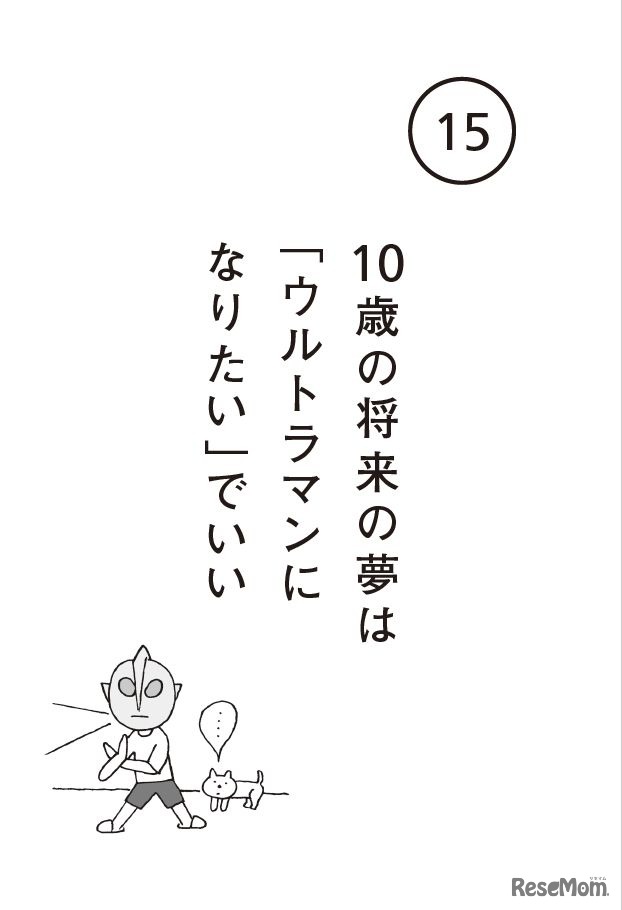 15
10歳の将来の夢は
「ウルトラマンに
なりたい」でいい
……
リセマム
ReseMom.